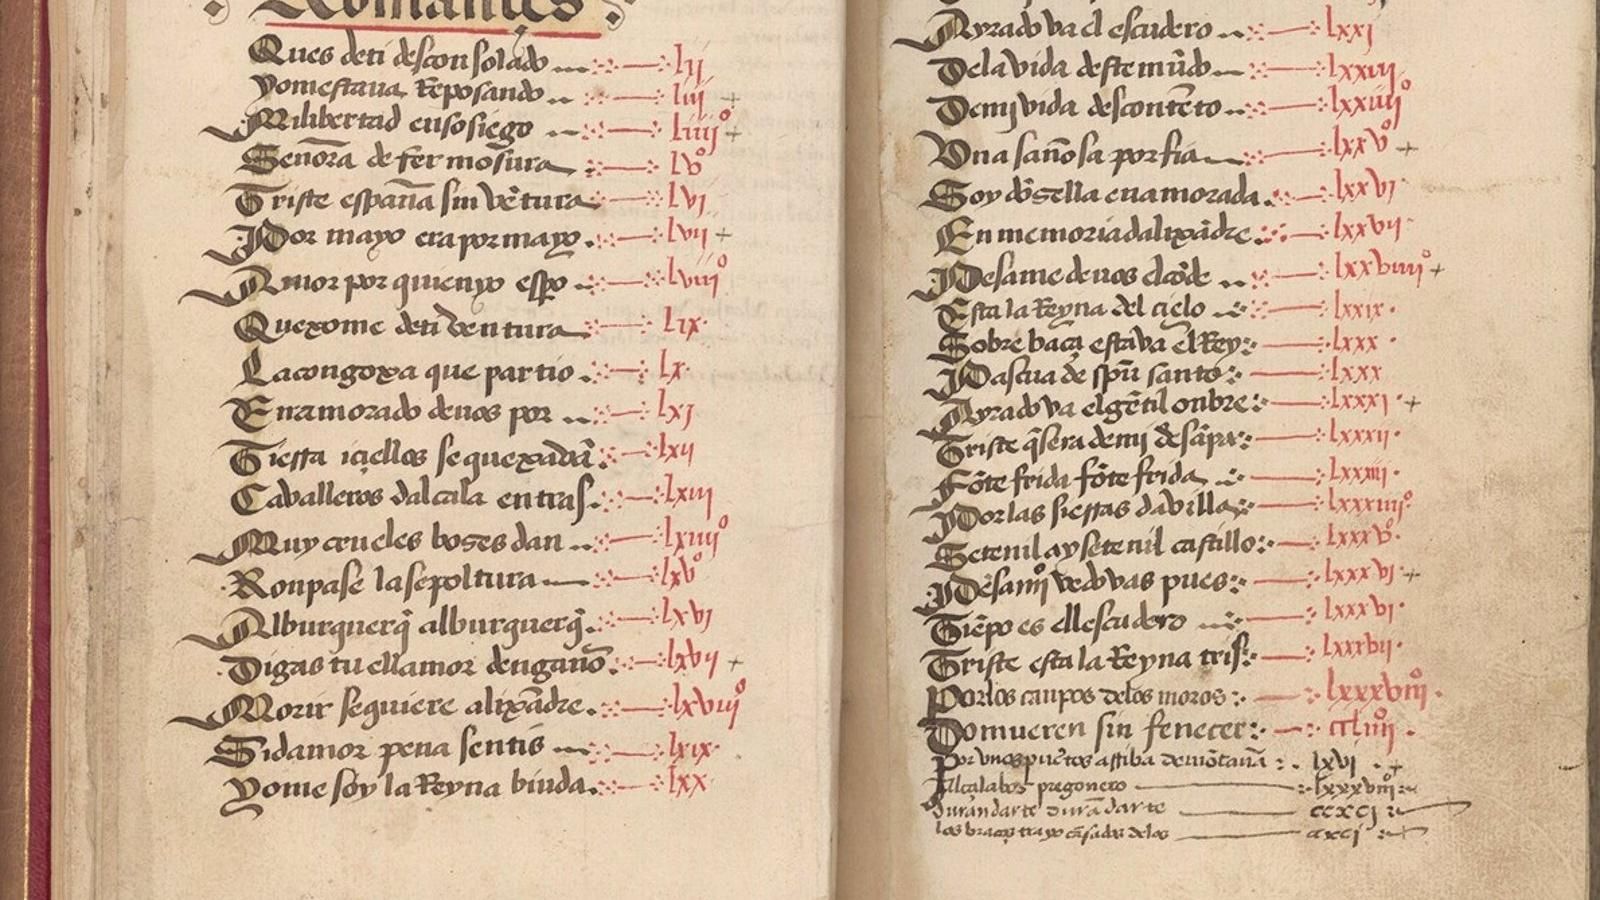 Romançes
Ques deti desconsolado lij
Yomestaua Reposando liij
Milibertad ensosiego liiijº
Senora de fermosura lvº
Triste españa sin vẽtura lvj
Por mayo erapormayo lvij
Amor por quienyo espo lviijº
Quexome deti ventura lix
Lacongoxa que partio lx
Enamorado deuos por lxj
Tierra içiellos sequexadã lxij
Caballeros dalcala entras lxiij
Muy crueles boses dan lxiiijº
Ronpase lasepoltura lxvº
Alburquerq̃ alburquerq̃ lxvj
Digas tu ellamor dengaño lxvij
Morir sequiere alixãdre lxviijº
Sidamor pena sentis lxix
Yome soy la Reyna biuda lxx
Ayrado va el escudero lxxj
Dela vida deste mũdo lxxij
Demi vida descontẽto lxxiiijº
Vna sañosa porfia lxxvº
Soy dõsella enamorada lxxvj
En memoria dalixãdre lxxvij
Pesame deuos elcõde lxxviiijº
Esta la Reyna del cielo lxxix
Sobre baça estava el Rey lxxx
Pascua de spũ santo lxxx
Ayrado va elgẽtil onbre lxxxj
Triste q̃sera demj desãpa lxxxij
Fõte frida fõte frida lxxxiij
Por las sierras davilla lxxxiiijº
Setenil ay setenil castillo lxxxvº
vedovas pues lxxxvj
Tiẽpo es ellescudero lxxxvj
Triste esta la Reyna tris lxxxvij
Por los canpos delos moros lxxxviijº
Yomueren sin fenecer ccliiijº
Por vnos puertos arriba demõtaña lxvj
Alcalabos pregonero lxxxviijº
Durandarte durãdarte ccxcj
los braços trayo cãsados delos cxcj